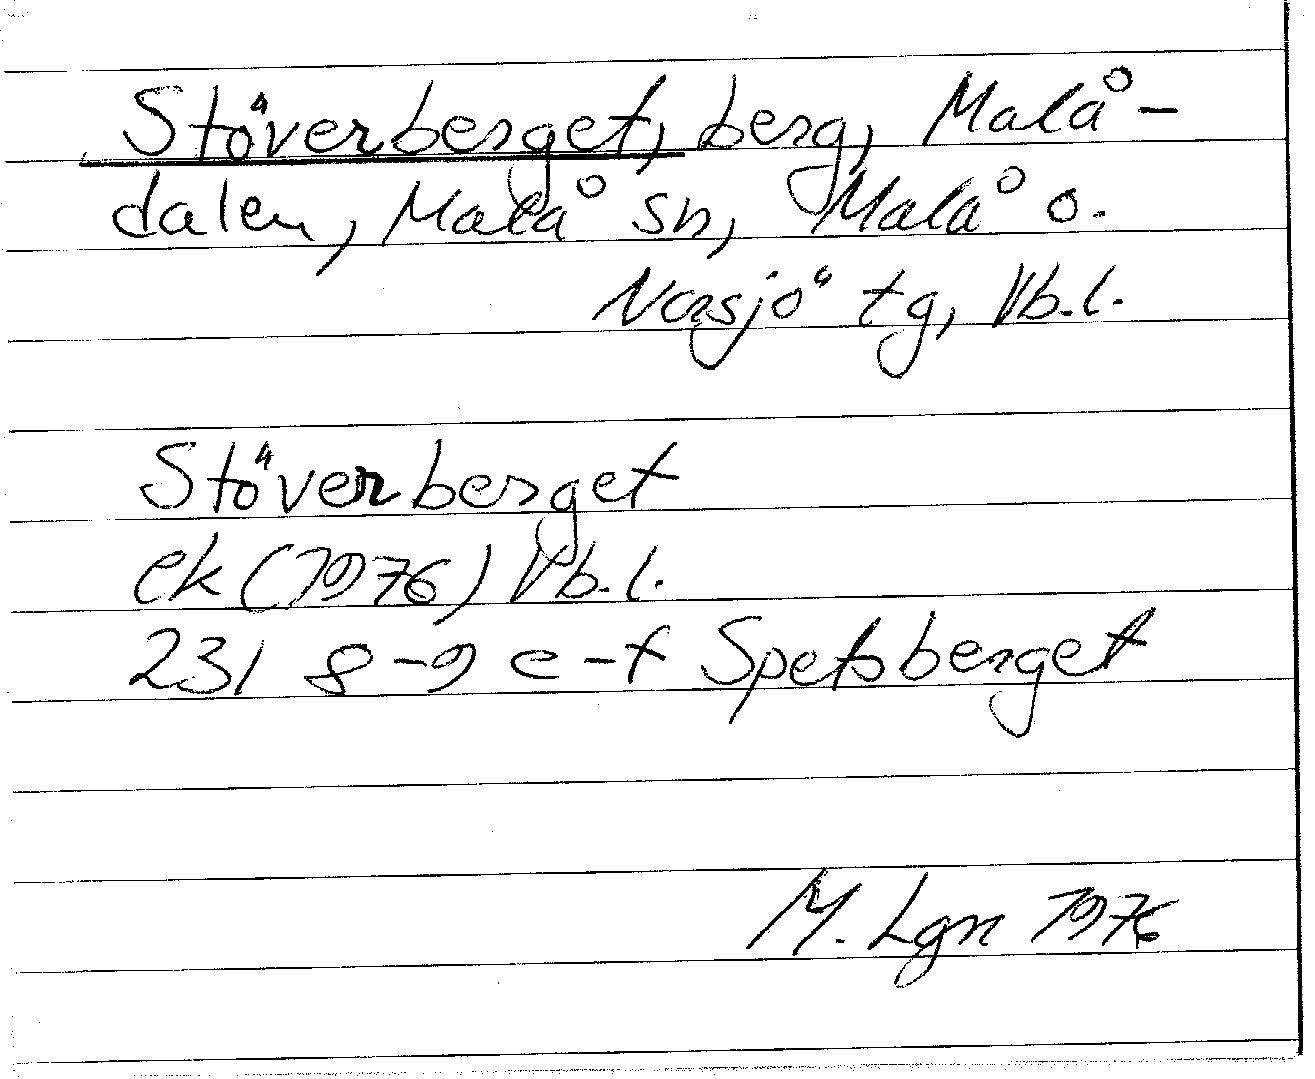 Stöverberget, berg, Malå-
dalen, Malå sn, Malå o.
Norsjö tg, Vb.l.
Stöverberget
ek (1976) Vb.l.
23I 8-9 e-f Spetsberget
M. Lgn 1976